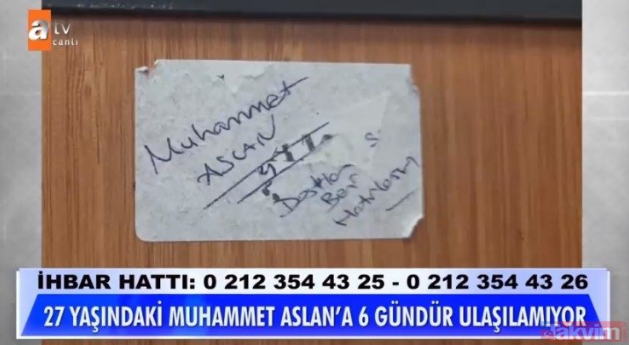 atv
canlı
Muhammet
ASLAN
Dostlar
Beni
Hatırlasın
İHBAR HATTI: 0 212 354 43 25 - 0 212 354 43 26
27 YAŞINDAKİ MUHAMMET ASLAN'A 6 GÜNDÜR ULAŞILAMIYOR
takvim